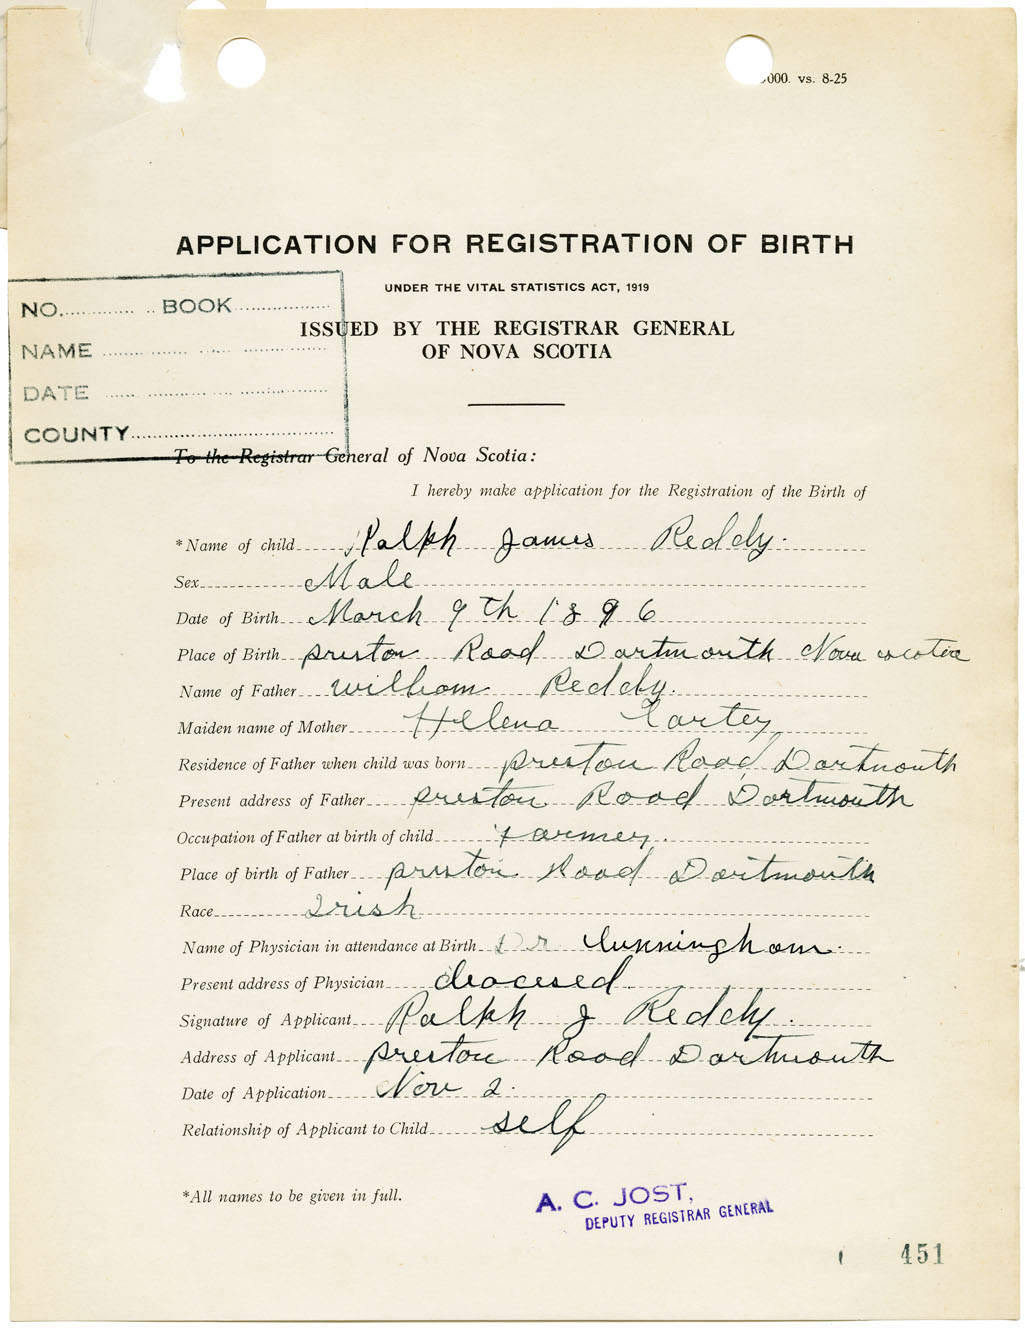 000. vs. 8-25
APPLICATION FOR REGISTRATION OF BIRTH
UNDER THE VITAL STATISTICS ACT, 1919
ISSUED BY THE REGISTRAR GENERAL
OF NOVA SCOTIA
NO. BOOK
NAME
DATE
COUNTY
To the Registrar General of Nova Scotia:
I hereby make application for the Registration of the Birth of
*Name of child Ralph James Reddy.
Sex Male
Date of Birth March 9th 1896
Place of Birth preston Road Dartmouth Nova scotia
Name of Father william Reddy.
Maiden name of Mother Helena
Residence of Father when child was born preston Road Dartmouth
Present address of Father preston Road Dartmouth
Occupation of Father at birth of child farmer.
Place of birth of Father preston Road Dartmouth
Race Irish
Name of Physician in attendance at Birth Dr Cunningham.
Present address of Physician deacesed.
Signature of Applicant Ralph J Reddy.
Address of Applicant preston Road Dartmouth
Date of Application Nov 2.
Relationship of Applicant to Child self
*All names to be given in full.
A. C. JOST,
DEPUTY REGISTRAR GENERAL
451